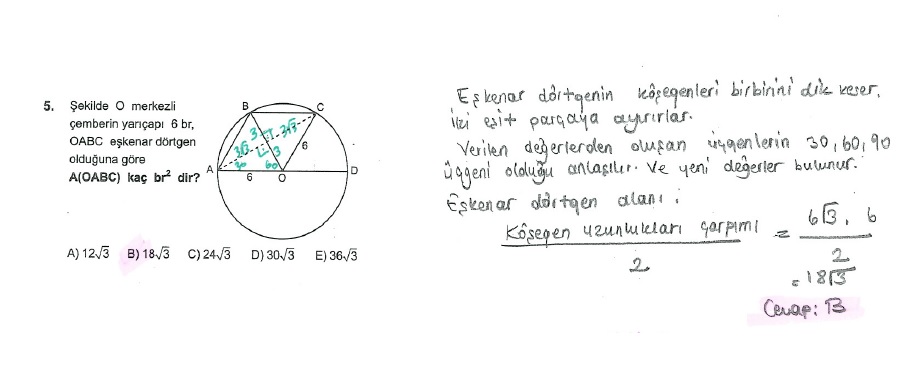 5. Şekilde O merkezli
çemberin yarıçapı 6 br,
OABC eşkenar dörtgen
olduğuna göre
A(OABC) kaç br² dir?
B
C
A
D
O
6
6
3√3
3
3√3
3
30
60
A) 12√3 B) 18√3 C) 24√3 D) 30√3 E) 36√3
Eşkenar dörtgenin köşegenleri birbirini dik keser,
iki eşit parçaya ayırırlar.
Verilen değerlerden oluşan üçgenlerin 30, 60, 90
üçgeni olduğu anlaşılır. Ve yeni değerler bulunur.
Eşkenar dörtgen alanı :
Köşegen uzunlukları çarpımı / 2 = 6√3 . 6 / 2
= 18√3
Cevap: B